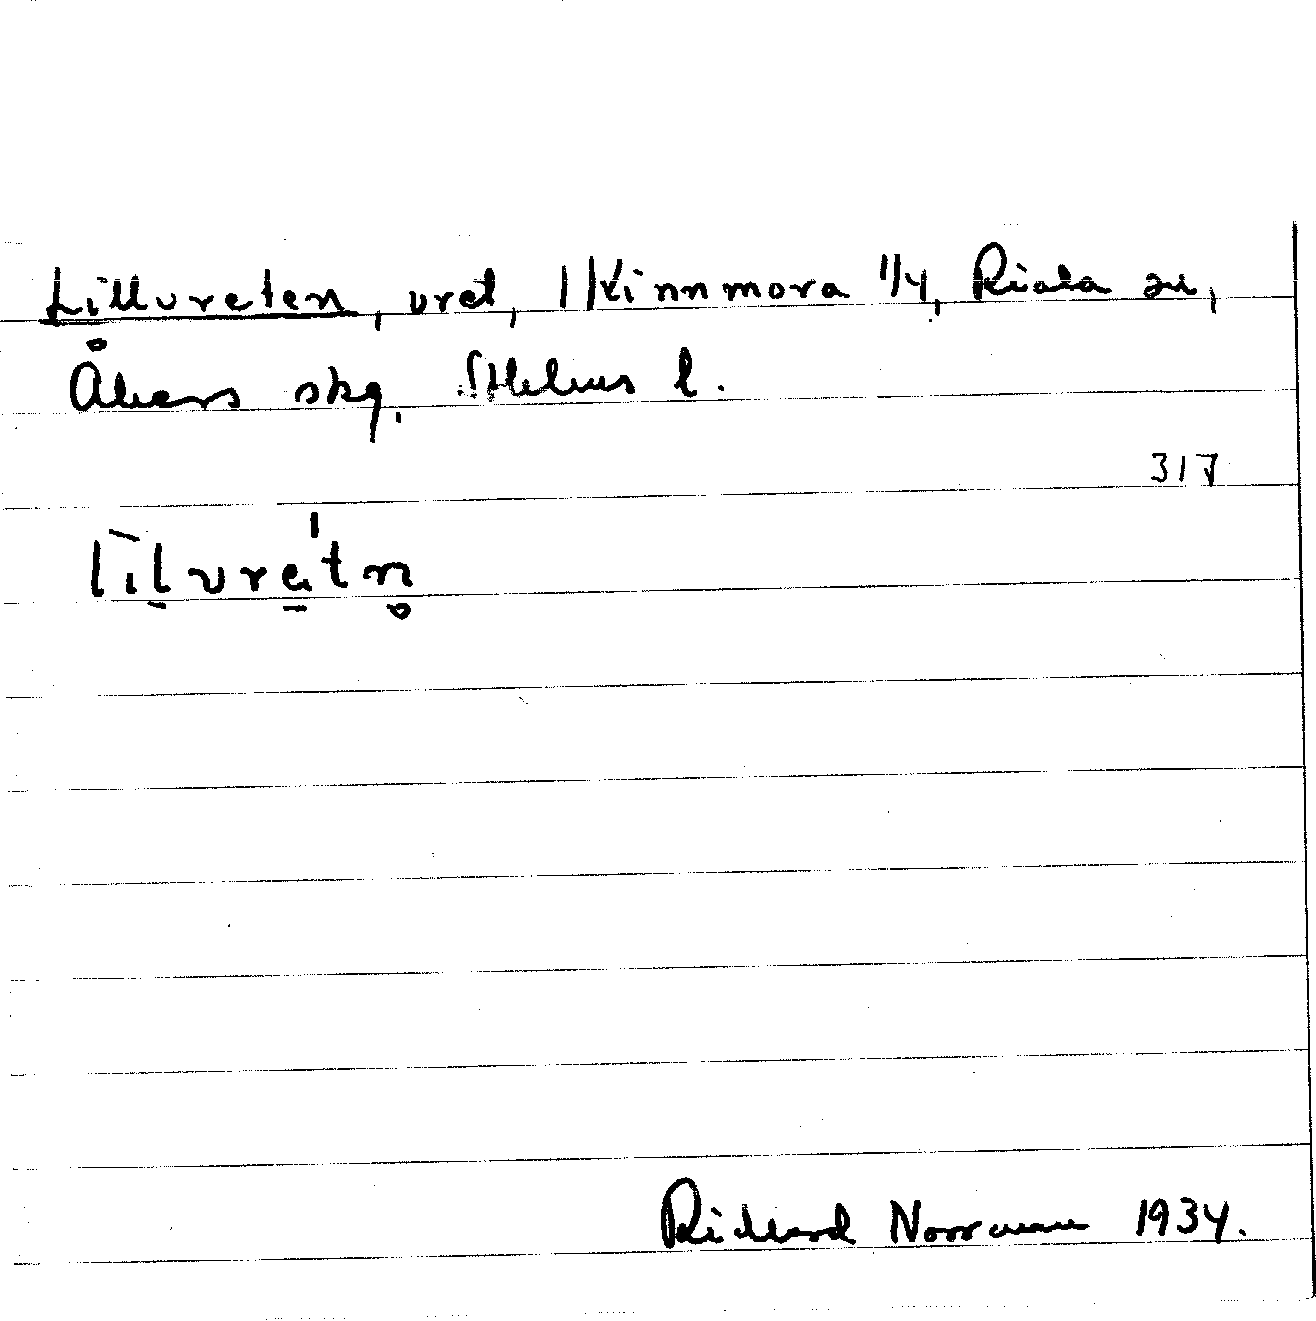 Lillvreten, vret, 1 Kinnmora 1/4, Riala sn,
Åkers skg. Sthlms l.
317
li̠lvrétn̥
Richard Norrman 1934.